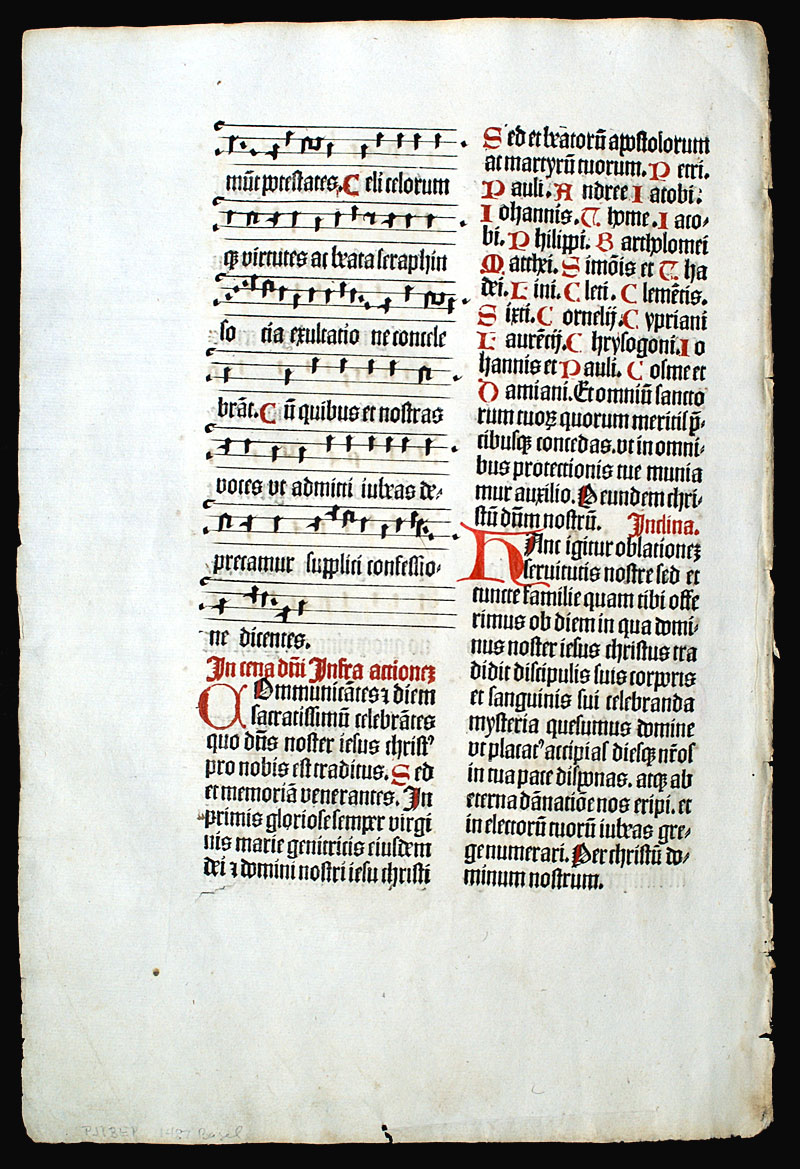 mūt potestates. Celi celorum
qꝫ virtutes ac beata seraphin
so cia exultatio ne concele
brāt. Cū quibus et nostras
voces vt admitti iubeas de⸗
precamur supplici confessio⸗
ne dicentes.
In cena dn̄i Infra actioneꝫ
COmmunicātes ⁊ diem
sacratissimū celebrātes
quo dn̄s noster iesus christꝰ
pro nobis est traditus. Sed
et memoriā venerantes. In
primis gloriose semper virgi
nis marie genitricis eiusdem
dei ⁊ domini nostri iesu christi
Sed et beatorū apostolorum
ac martyrū tuorum. Petri.
Pauli. Andree Iacobi.
Iohannis. Thome. Iaco⸗
bi. Philippi. Bartholomei
Matthei. Simōis et Tha
dei. Lini. Cleti. Clemētis.
Sixti. Cornelij. Cypriani
Laurētij. Chrysogoni. Io
hannis et Pauli. Cosme et
Damiani. Et omniū sancto
rum tuoꝝ quorum meritis p̄⸗
cibusqꝫ concedas. vt in omni⸗
bus protectionis tue munia
mur auxilio. Per eundem chri⸗
stū dn̄m nostrū. Inclina.
HAnc igitur oblationeꝫ
seruitutis nostre sed et
cuncte familie quam tibi offe
rimus ob diem in qua domi⸗
nus noster iesus christus tra
didit discipulis suis corporis
et sanguinis sui celebranda
mysteria quesumus domine
vt placatꝰ accipias diesqꝫ nr̄os
in tua pace disponas. atqꝫ ab
eterna dānatiōe nos eripi. et
in electorū tuorū iubeas gre⸗
ge numerari. Per christū do⸗
minum nostrum.
1487 Basel